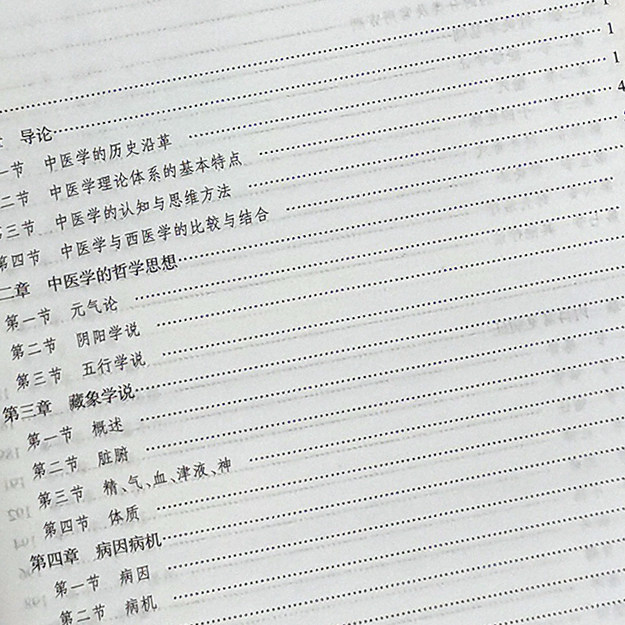 1
导论 1
一节 中医学的历史沿革 1
二节 中医学理论体系的基本特点 4
第三节 中医学的认知与思维方法
第四节 中医学与西医学的比较与结合
二章 中医学的哲学思想
第一节 元气论
第二节 阴阳学说
第三节 五行学说
第三章 藏象学说
第一节 概述
第二节 脏腑
第三节 精、气、血、津液、神
第四节 体质
第四章 病因病机
第一节 病因
第二节 病机